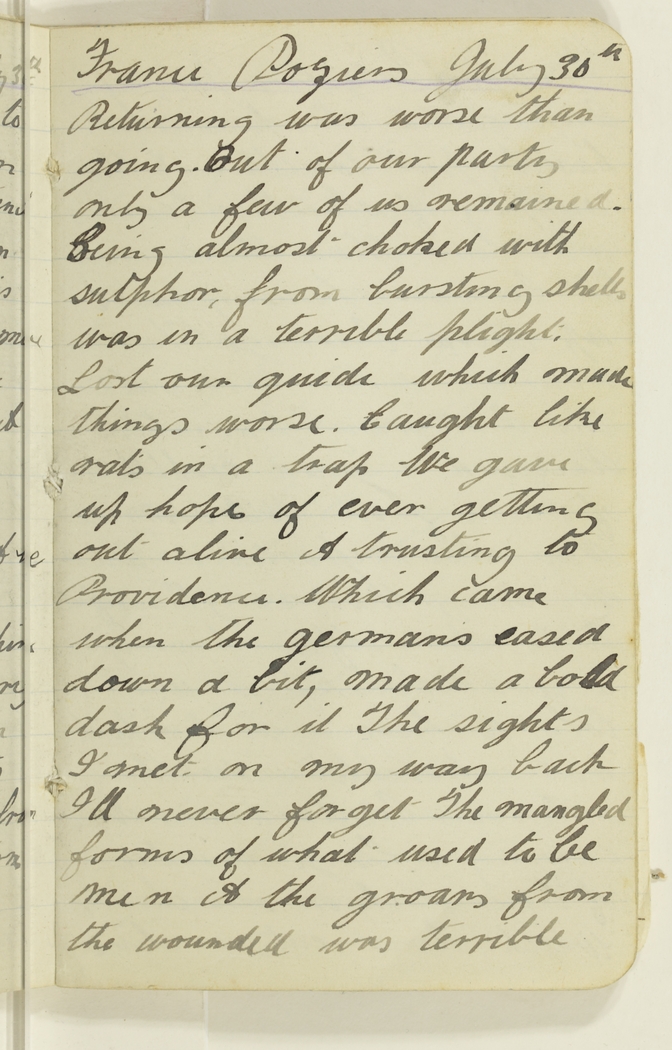 France Poziers July 30th
Returning was worse than
going. Out of our party
only a few of us remained.
Being almost choked with
sulphor, from bursting shells
was in a terrible plight.
Lost our guide which made
things worse. Caught like
rats in a trap We gave
up hope of ever getting
out alive & trusting to
Providence. Which came
when the germans eased
down a bit, made a bold
dash for it The sights
I met on my way back
I'll never forget The mangled
forms of what used to be
men & the groans from
the wounded was terrible